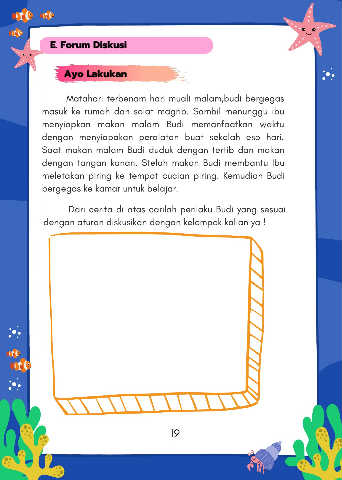 E. Forum Diskusi
Ayo Lakukan
Matahari terbenam hari muali malam,budi bergegas
masuk ke rumah dan solat magrib. Sambil menunggu Ibu
menyiapkan makan malam Budi memanfaatkan waktu
dengan menyiapakan peralatan buat sekolah eso hari.
Saat makan malam Budi duduk dengan tertib dan makan
dengan tangan kanan. Stelah makan Budi membantu Ibu
meletakan piring ke tempat cucian piring. Kemudian Budi
bergegas ke kamar untuk belajar.
Dari cerita di atas carilah perilaku Budi yang sesuai
dengan aturan diskusikan dengan kelompok kalian ya !
19